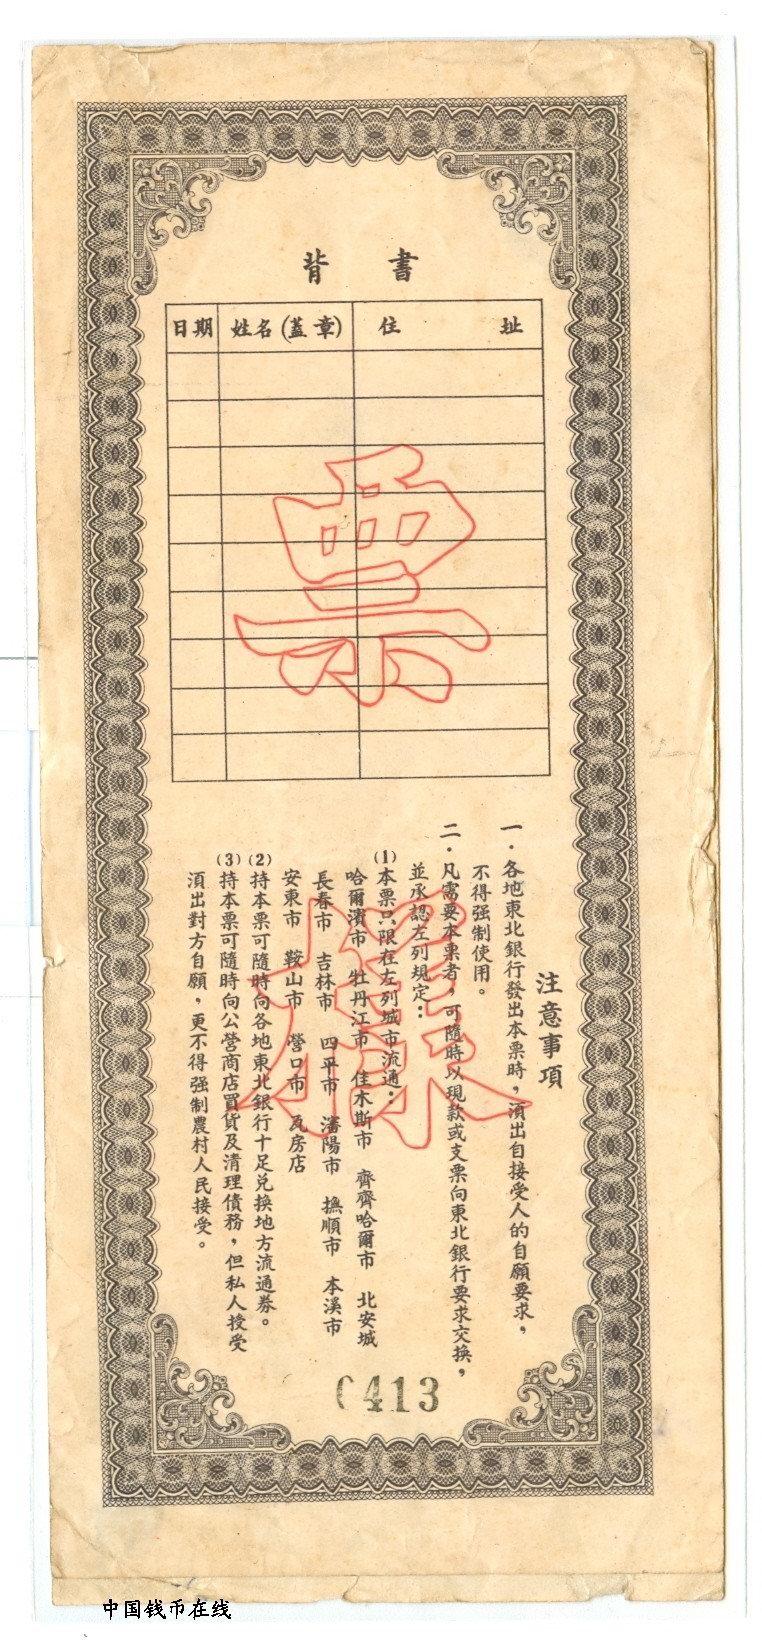 背書
日期 姓名(蓋章) 住址
票樣
注意事項
一．各地東北銀行發出本票時，須出自接受人的自願要求，
不得强制使用。
二．凡需要本票者，可隨時以現款或支票向東北銀行要求交換，
並承認左列規定：
(1)本票只限在左列城市流通：
哈爾濱市 牡丹江市 佳木斯市 齊齊哈爾市 北安城
長春市 吉林市 四平市 瀋陽市 撫順市 本溪市
安東市 鞍山市 營口市 瓦房店
(2)持本票可隨時向各地東北銀行十足兑換地方流通券。
(3)持本票可隨時向公營商店買貨及清理債務，但私人授受
須出對方自願，更不得强制農村人民接受。
0413
中国钱币在线